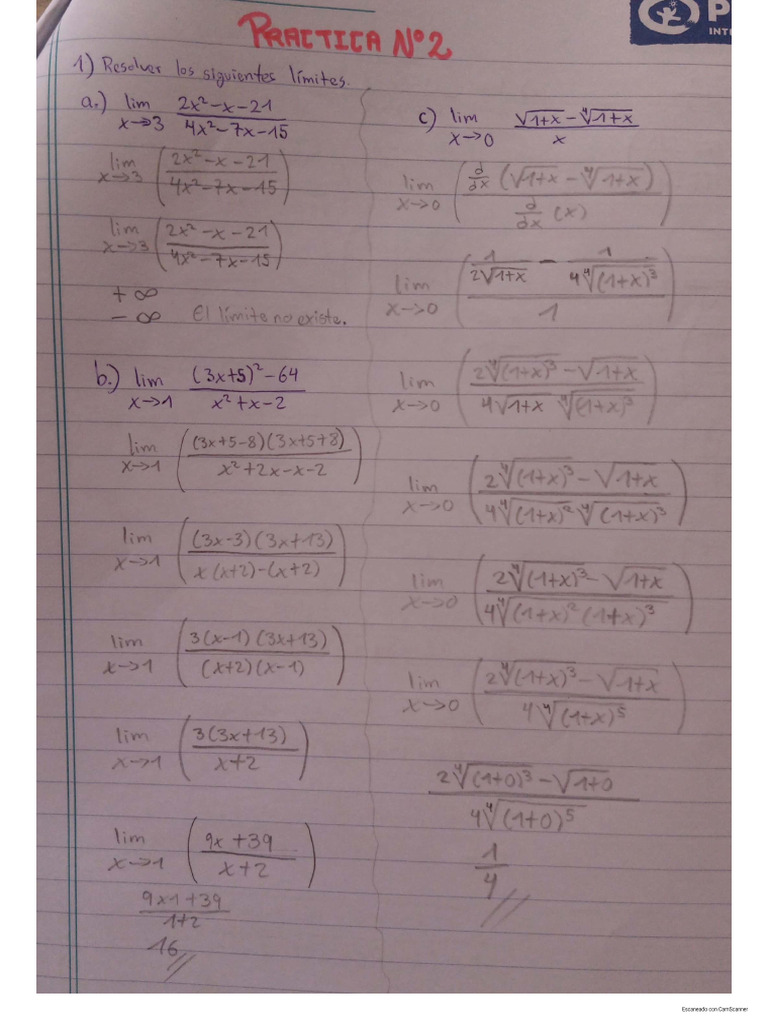 PRACTICA Nº2
P
INT
1) Resolver los siguientes límites.
a.) lim x→3 (2x²-x-21)/(4x²-7x-15)
lim x→3 ((2x²-x-21)/(4x²-7x-15))
lim x→3 ((2x²-x-21)/(4x²-7x-15))
+∞
-∞ El límite no existe.
b.) lim x→1 ((3x+5)²-64)/(x²+x-2)
lim x→1 (((3x+5-8)(3x+5+8))/(x²+2x-x-2))
lim x→1 (((3x-3)(3x+13))/(x(x+2)-(x+2)))
lim x→1 ((3(x-1)(3x+13))/((x+2)(x-1)))
lim x→1 ((3(3x+13))/(x+2))
lim x→1 ((9x+39)/(x+2))
(9x1+39)/(1+2)
16
c) lim x→0 (√(1+x)-∜(1+x))/x
lim x→0 ((d/dx (√(1+x)-∜(1+x)))/(d/dx (x)))
lim x→0 ((1/(2√(1+x)) - 1/(4∜((1+x)³)))/1)
lim x→0 ((2∜((1+x)³)-√(1+x))/(4√(1+x) ∜((1+x)³)))
lim x→0 ((2∜((1+x)³)-√(1+x))/(4∜((1+x)²) ∜((1+x)³)))
lim x→0 ((2∜((1+x)³)-√(1+x))/(4∜((1+x)²(1+x)³)))
lim x→0 ((2∜((1+x)³)-√(1+x))/(4∜((1+x)⁵)))
(2∜((1+0)³)-√(1+0))/(4∜((1+0)⁵))
1/4
Escaneado con CamScanner